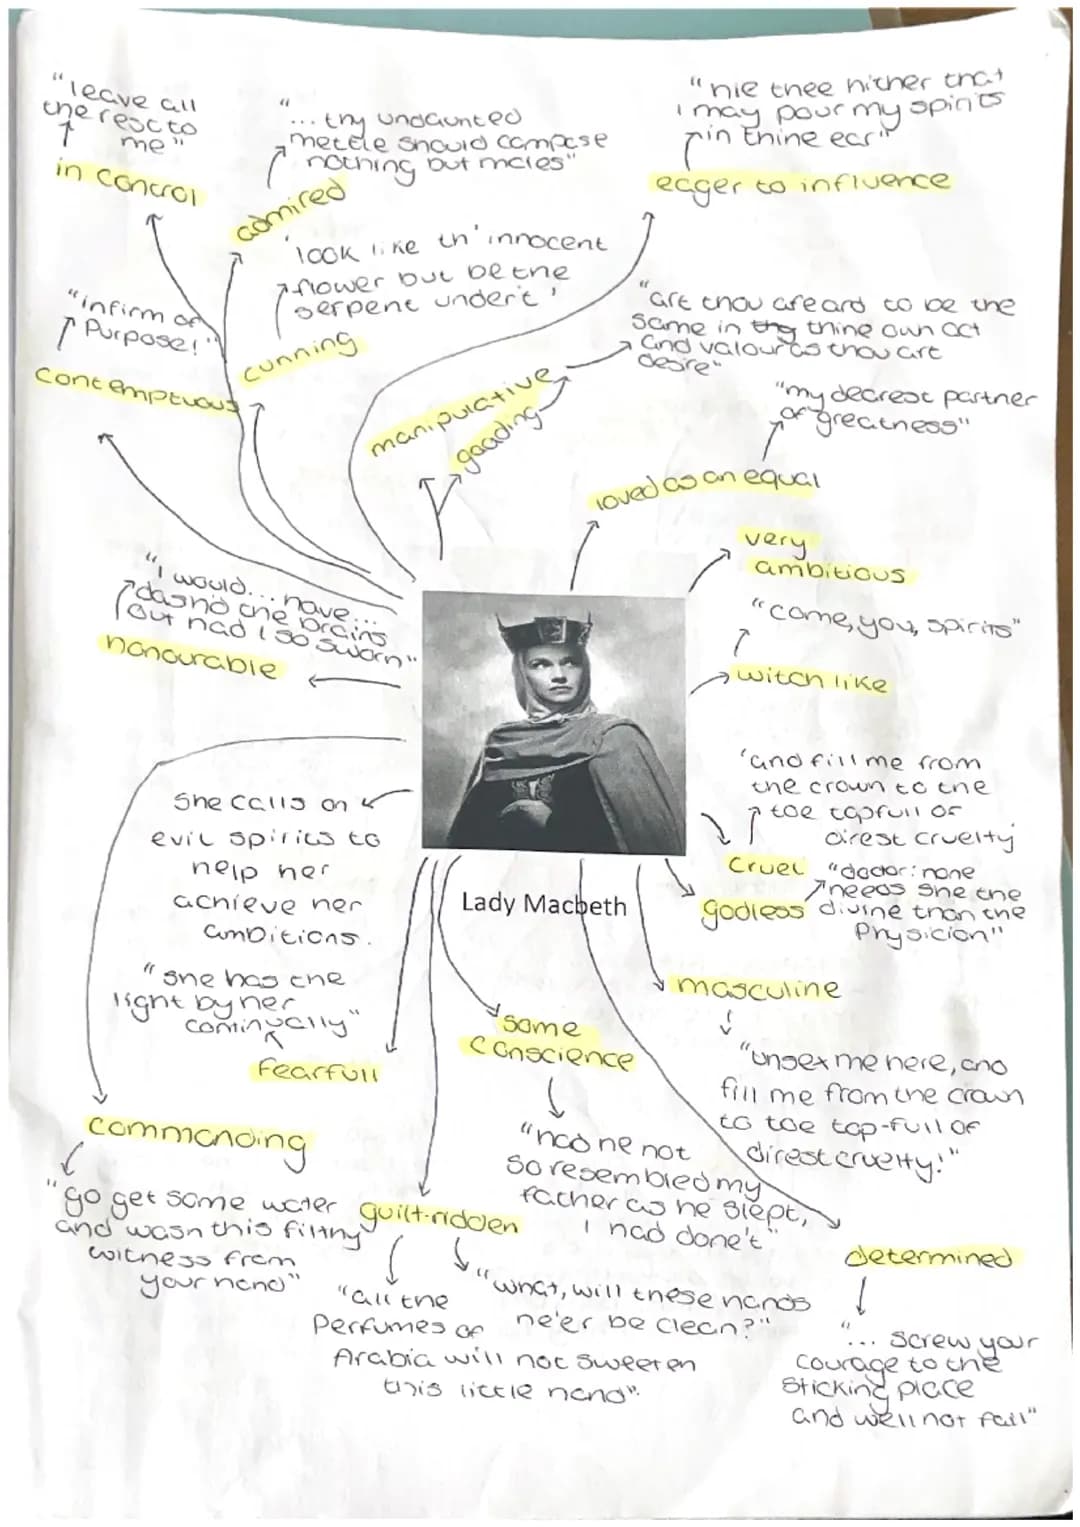 "leave all
the rest to
me"
in control
"
...thy undaunted
mettle should compose
nothing but males"
admired
"hie thee hither that
i may pour my spirits
in thine ear"
eager to influence
'look like th' innocent
flower but be the
serpent under't'
cunning
"infirm of
Purpose!"
contemptuous
"art thou afeard to be the
same in thy thine own act
and valour as thou art
desire"
manipulative
goading
"my dearest partner
of greatness"
loved as an equal
very
ambitious
"I would... have...
dash'd the brains
out had I so sworn"
honourable
"come, you, spirits"
witch like
She calls on
evil spirits to
help her
achieve her
ambitions.
'and fill me from
the crown to the
toe topfull of
direst cruelty'
cruel
"doctor: none
needs she the
divine than the
Physician"
godless
Lady Macbeth
"she has the
light by her
continually"
fearfull
some
conscience
"had he not
so resembled my
father as he slept,
I had done't"
masculine
"unsex me here, and
fill me from the crown
to toe top-full of
direst cruelty!"
commanding
"go get some water
and wash this filthy
witness from
your hand"
guilt-ridden
"all the
Perfumes of
Arabia will not sweeten
this little hand".
"what, will these hands
ne'er be clean?"
determined
"
... screw your
courage to the
sticking place
and we'll not fail"